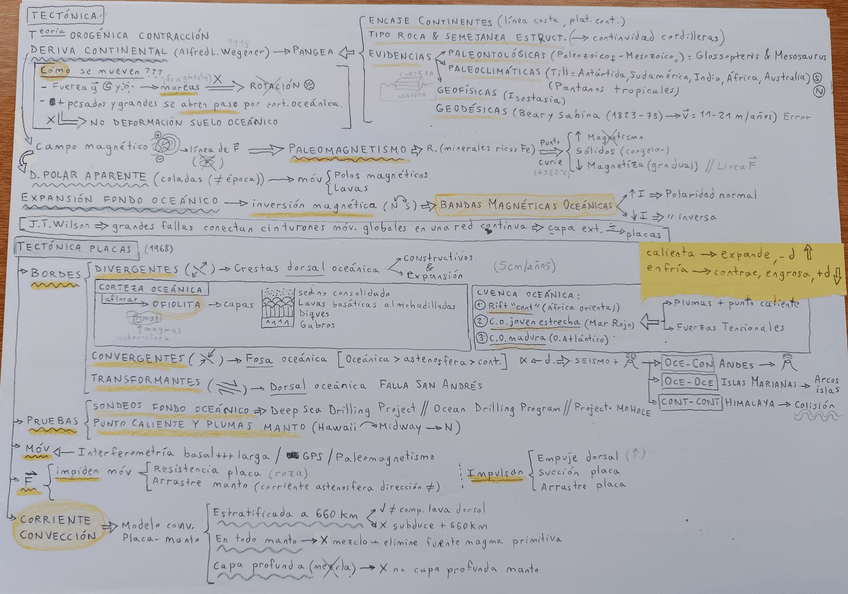 TECTÓNICA
Teoría OROGÉNICA CONTRACCIÓN
DERIVA CONTINENTAL (Alfred L. Wegener) → PANGEA
1915
ENCAJE CONTINENTES (línea costa, plat. cont.)
TIPO ROCA & SEMEJANZA ESTRUCT. (→ continuidad cordilleras)
EVIDENCIAS
PALEONTOLÓGICAS (Paleozoico - Mesozoico): Glossopteris & Mesosaurus
PALEOCLIMÁTICAS (Till = Antártida, Sudamérica, India, África, Australia) S
(Pantanos tropicales) N
CORTEZA
MANTO
GEOFÍSICAS (Isostasia)
GEODÉSICAS (Bear y Sabina (1823-73) → v = 11-21 m/años) Error
Cómo se mueven???
- Fuerza → mareas ⇒ ROTACIÓN
- + pesados y grandes se abren paso por cort. oceánica
X ⇒ NO DEFORMACIÓN SUELO OCEÁNICO
Campo magnético → línea de F ⇒ PALEOMAGNETISMO ⇒ R. (minerales ricos Fe)
Punto
Curie
↑ Magnetismo
Sólidos (congelar)
↓ Magnetiza (gradual) // Línea F
D. POLAR APARENTE (coladas (≠ época)) → móv
Polos magnéticos
Lavas
EXPANSIÓN FONDO OCEÁNICO → inversión magnética (N S) ⇒ BANDAS MAGNÉTICAS OCEÁNICAS
↑ I ⇒ Polaridad normal
↓ I ⇒ " inversa
J.T. Wilson ⇒ grandes fallas conectan cinturones móv. globales en una red continua ⇒ capa ext. = placas
TECTÓNICA PLACAS (1968)
calienta → expande, - d ↑
enfría → contrae, engrosa, + d ↓
BORDES
DIVERGENTES → Crestas dorsal oceánica
constructivos
&
expansión
(5cm/años)
CORTEZA OCEÁNICA
aflorar → OFIOLITA → capas
Sed no consolidado
Lavas basálticas almohadilladas
Diques
Gabros
CUENCA OCEÁNICA:
① Rift "cont" (África oriental)
② C.O. joven estrecha (Mar Rojo)
③ C.O. madura (O. Atlántico)
Plumas + punto caliente
Fuerzas Tensionales
CONVERGENTES → Fosa oceánica [Oceánica > astenosfera > cont.] α d. ⇒ SEISMO +
OCE-CON ANDES →
OCE-OCE ISLAS MARIANAS → Arcos islas
CONT-CONT HIMALAYA → Colisión
TRANSFORMANTES → Dorsal oceánica FALLA SAN ANDRÉS
PRUEBAS
SONDEOS FONDO OCEÁNICO ⇒ Deep Sea Drilling Project // Ocean Drilling Program // Project MOHOLE
PUNTO CALIENTE Y PLUMAS MANTO (Hawaii Midway → N)
MÓV ← Interferometría basal +++ larga / GPS / Paleomagnetismo
F
impiden móv
Resistencia placa (roza)
Arrastre manto (corriente astenosfera dirección ≠)
Impulsan
Empuje dorsal (↑)
Succión placa
Arrastre placa
CORRIENTE
CONVECCIÓN
Modelo conv.
Placa-manto
Estratificada a 660 km
√ ≠ comp. lava dorsal
X subduce + 660km
En todo manto → X mezcla → elimine fuente magma primitiva
Capa profunda (mezcla) → X no capa profunda manto